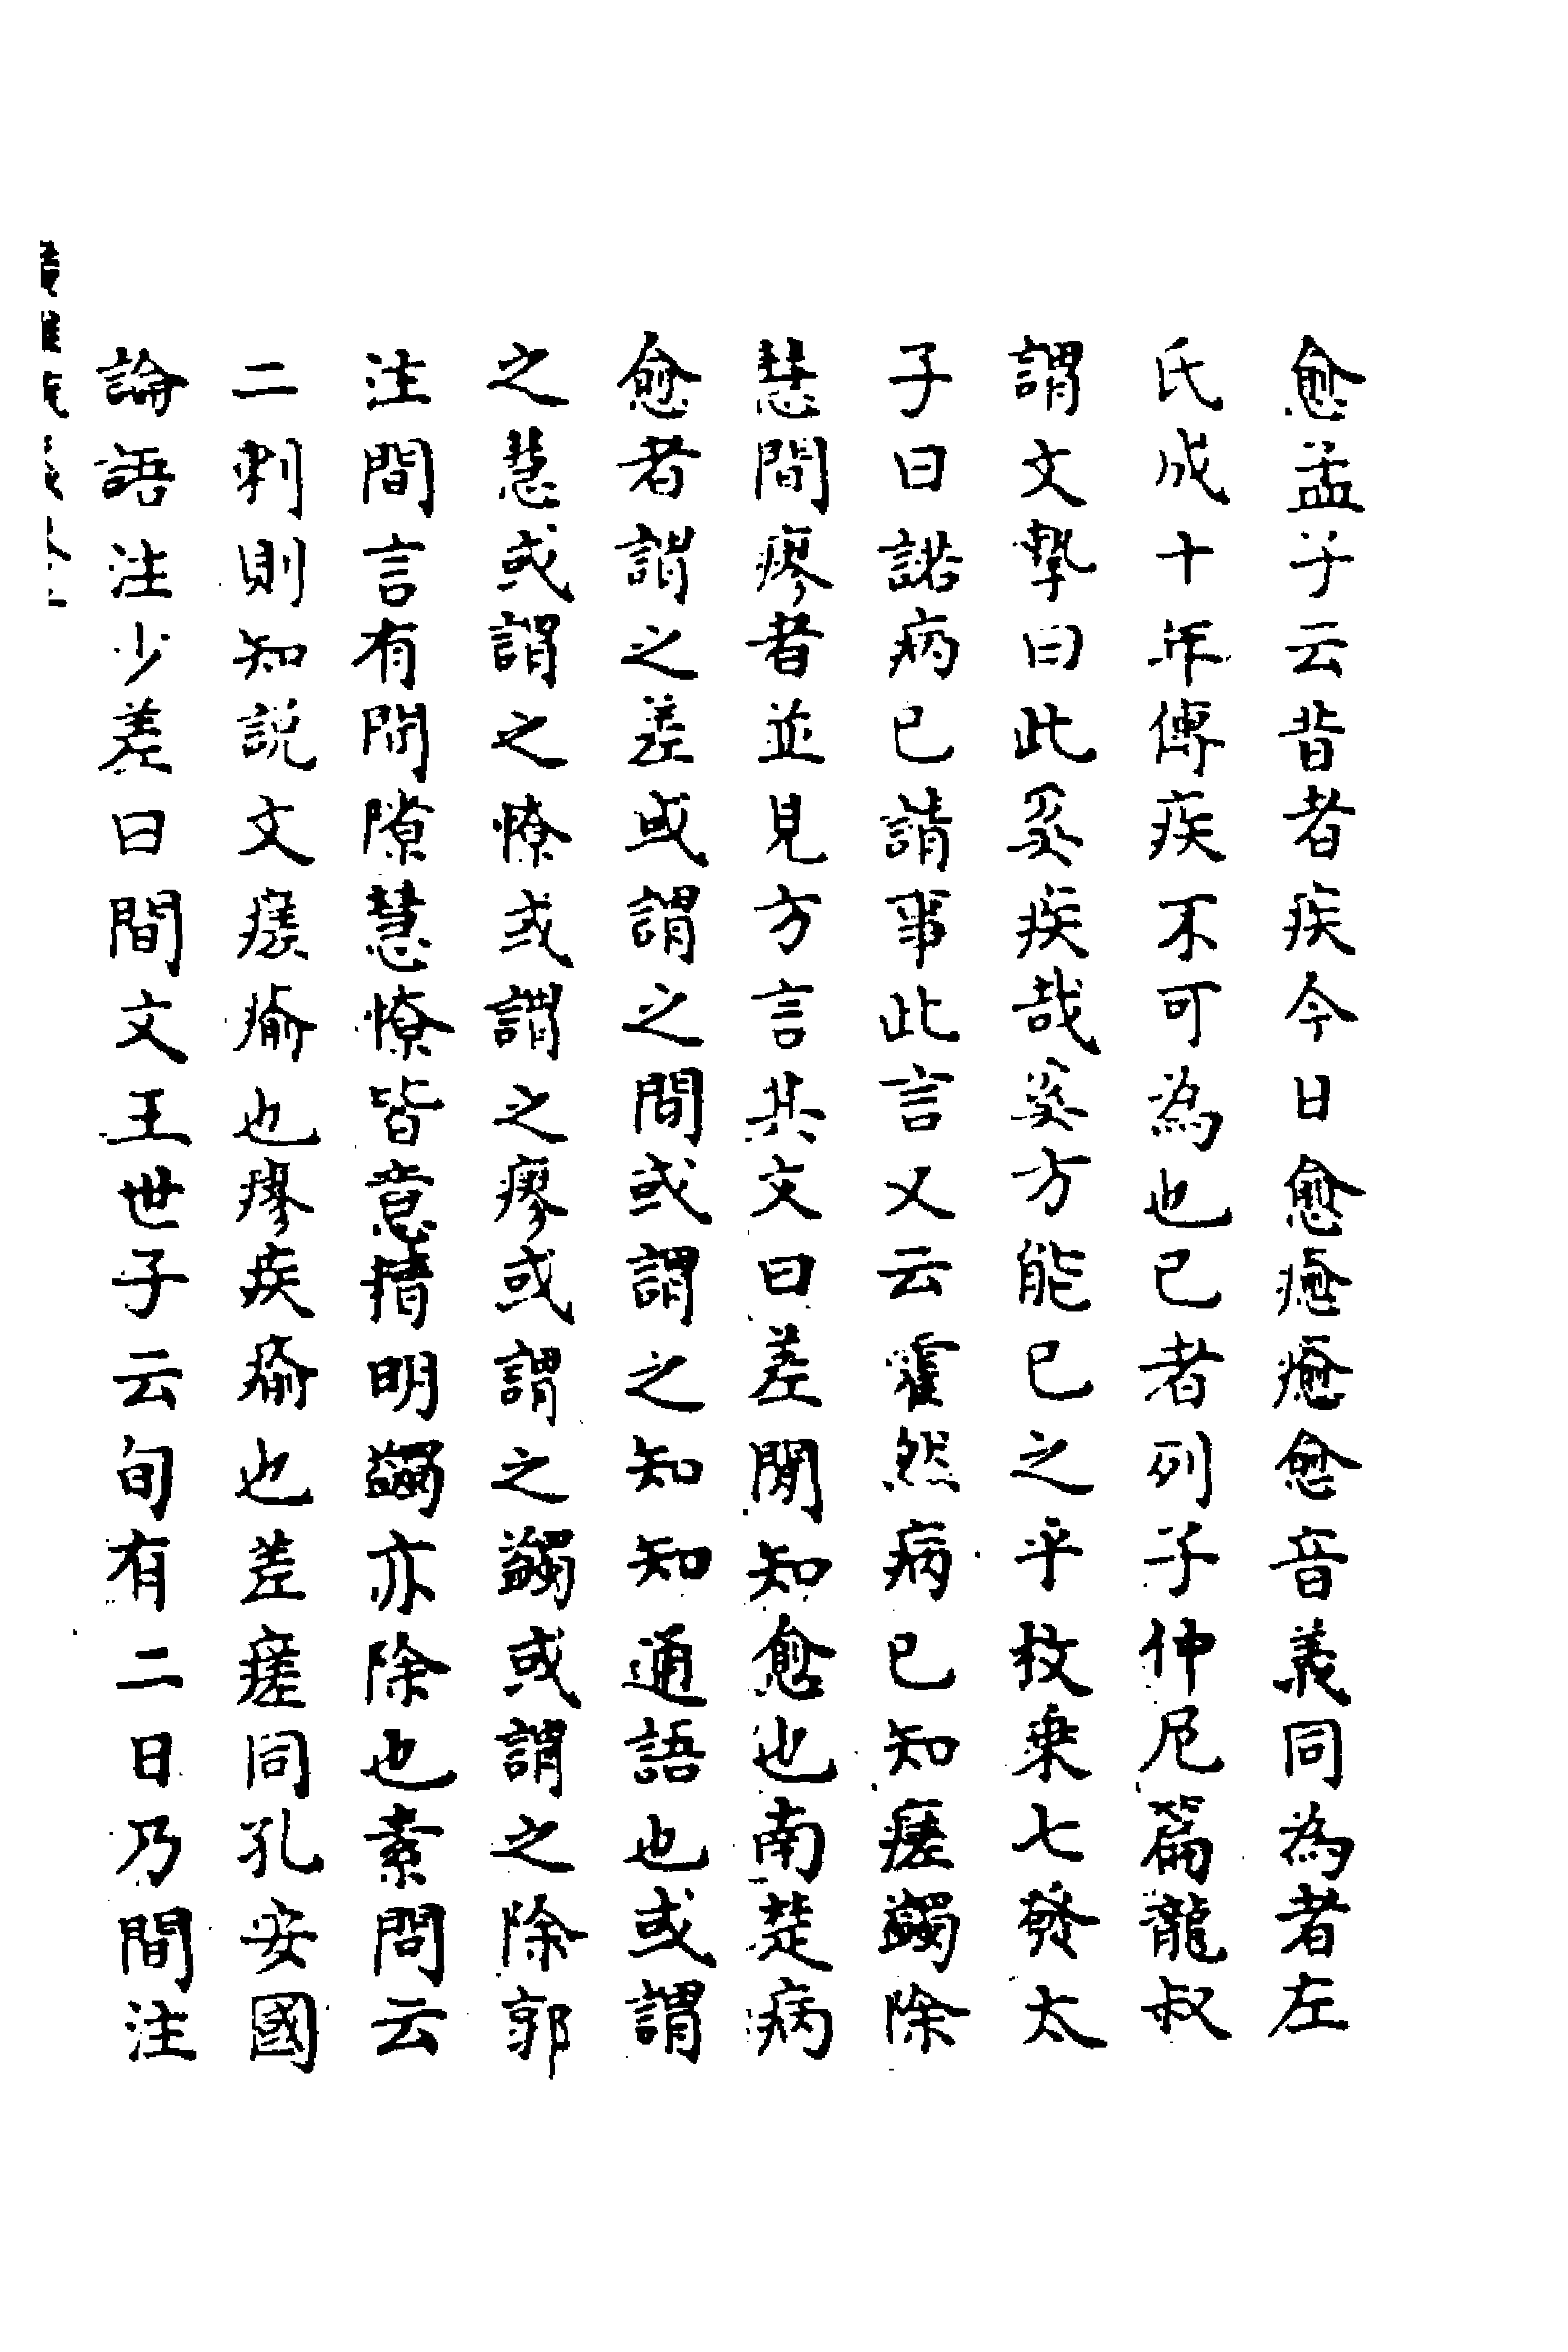 愈孟子云昔者疾今日愈瘉癒愈音義同為者左
氏成十年傳疾不可為也已者列子仲尼篇龍叔
謂文摯曰此奚疾哉奚方能已之乎枚乗七發太
子曰諾病已請事此言又云霍然病已知瘥蠲除
慧間瘳者並見方言其文曰差閒知愈也南楚病
愈者謂之差或謂之間或謂之知知通語也或謂
之慧或謂之憭或謂之瘳或謂之蠲或謂之除郭
注間言有間隙慧憭皆意精明蠲亦除也素問云
二刺則知説文瘥瘉也瘳疾瘉也差瘥同孔安國
論語注少差曰間文王世子云旬有二日乃間注